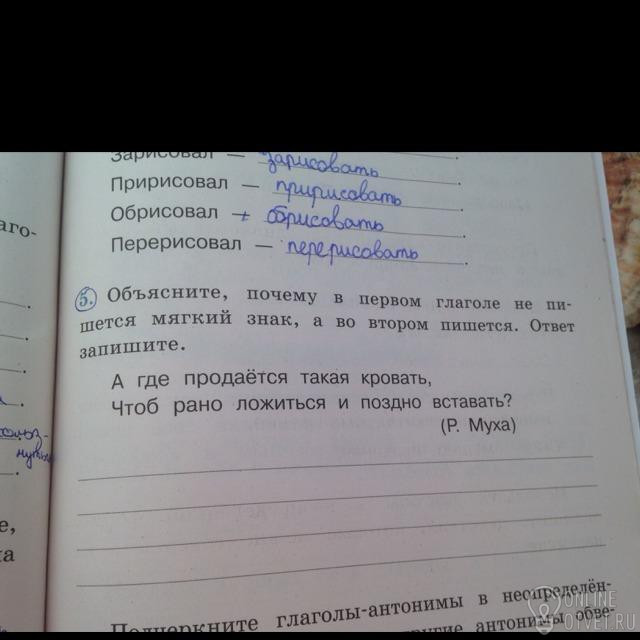 Зарисовал — зарисовать.
Пририсовал — пририсовать.
Обрисовал — обрисовать.
Перерисовал — перерисовать.
аго-
5. Объясните, почему в первом глаголе не пи-
шется мягкий знак, а во втором пишется. Ответ
запишите.
А где продаётся такая кровать,
Чтоб рано ложиться и поздно вставать?
(Р. Муха)
Подчеркните глаголы-антонимы в неопределён-
другие антонимы
ONLINE
OTVET.RU